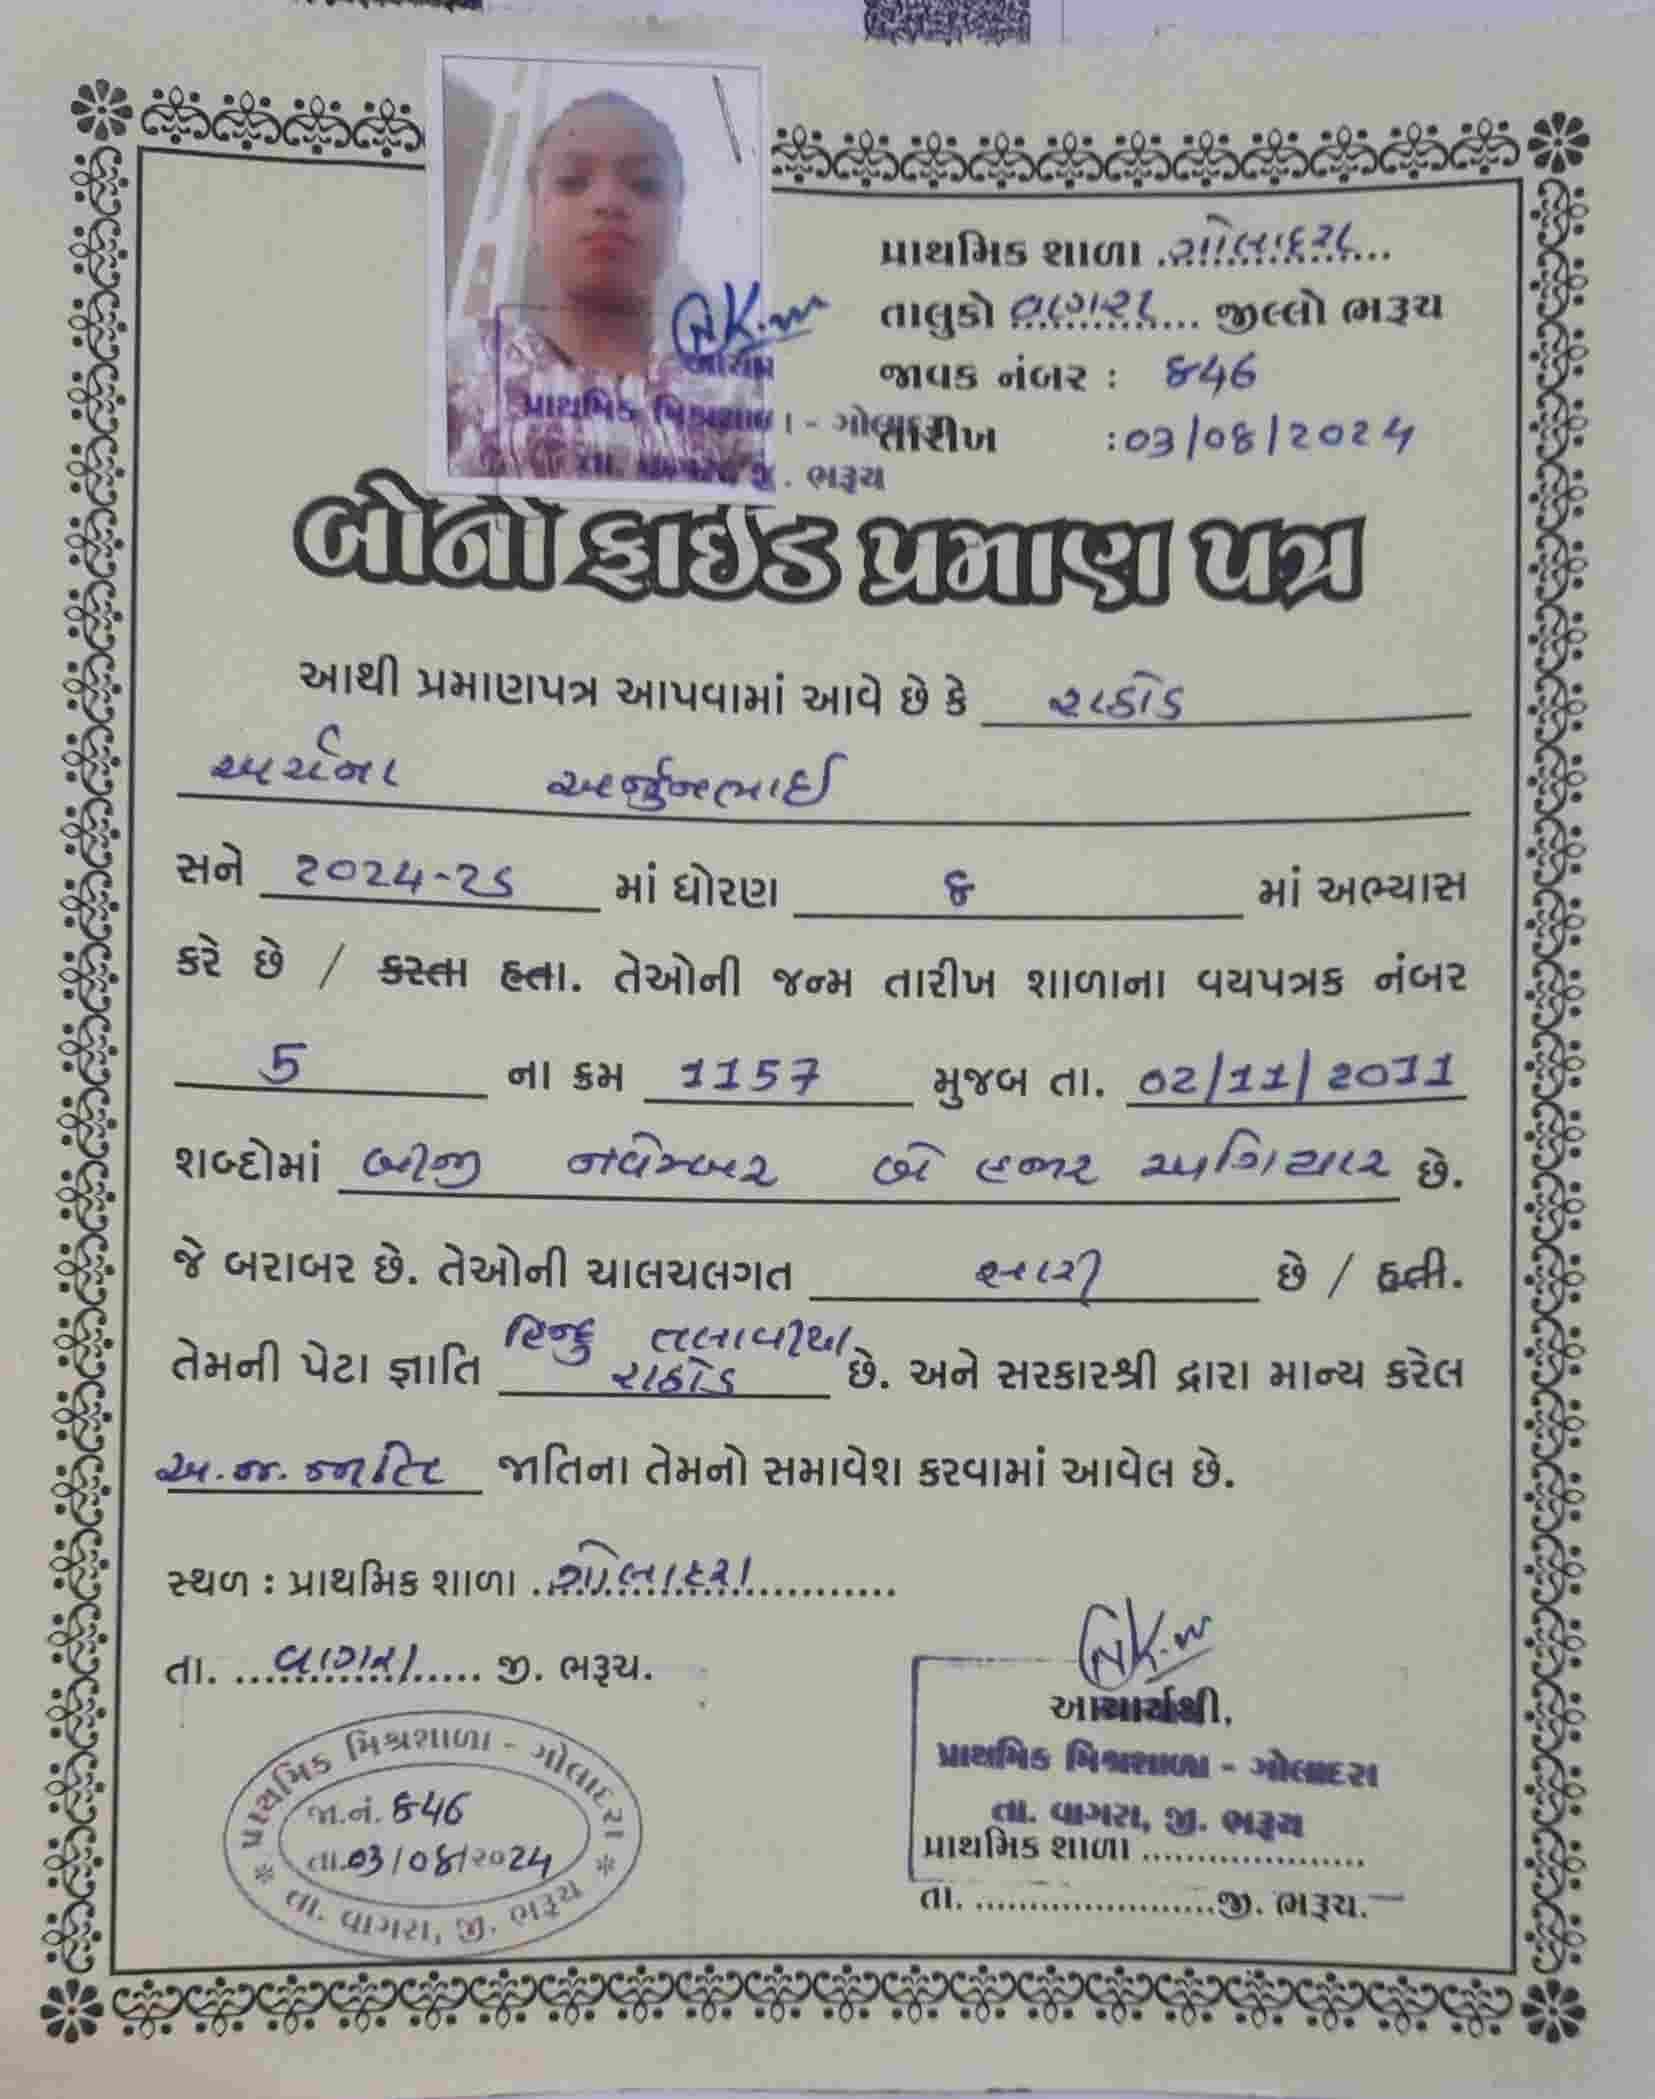 પ્રાથમિક શાળા ગોલાદરા
તાલુકો વાગરા જીલ્લો ભરૂચ
જાવક નંબર : ૮૪૬
તારીખ :૦૩/૦૮/૨૦૨૪
N.K.m
આચાર્ય
પ્રાથમિક મિશ્રશાળા - ગોલાદરા
તા. વાગરા, જી. ભરૂચ
બોનોફાઈડ પ્રમાણ પત્ર
આથી પ્રમાણપત્ર આપવામાં આવે છે કે રાઠોડ
અર્ચના અર્જુનભાઈ
સને ૨૦૨૪-૨૫ માં ધોરણ ૮ માં અભ્યાસ
કરે છે / કરતા હતા. તેઓની જન્મ તારીખ શાળાના વયપત્રક નંબર
5 ના ક્રમ 1157 મુજબ તા. ૦૨/11/૨૦11
શબ્દોમાં બીજી નવેમ્બર બે હજાર અગિયાર છે.
જે બરાબર છે. તેઓની ચાલચલગત સારી છે / હતી.
તેમની પેટા જ્ઞાતિ હિન્દુ તલાવીયા રાઠોડ છે. અને સરકારશ્રી દ્વારા માન્ય કરેલ
અ.જ.જાતિ જાતિના તેમનો સમાવેશ કરવામાં આવેલ છે.
સ્થળ : પ્રાથમિક શાળા ગોલાદરા
તા. વાગરા જી. ભરૂચ.
પ્રાથમિક મિશ્રશાળા - ગોલાદરા
જા.નં. ૮૪૬
તા.૦૩/૦૮/૨૦૨૪
* તા. વાગરા, જી. ભરૂચ *
N.K.m
આચાર્યશ્રી,
પ્રાથમિક મિશ્રશાળા - ગોલાદરા
તા. વાગરા, જી. ભરૂચ
પ્રાથમિક શાળા ....................
તા. ......................જી. ભરૂચ.